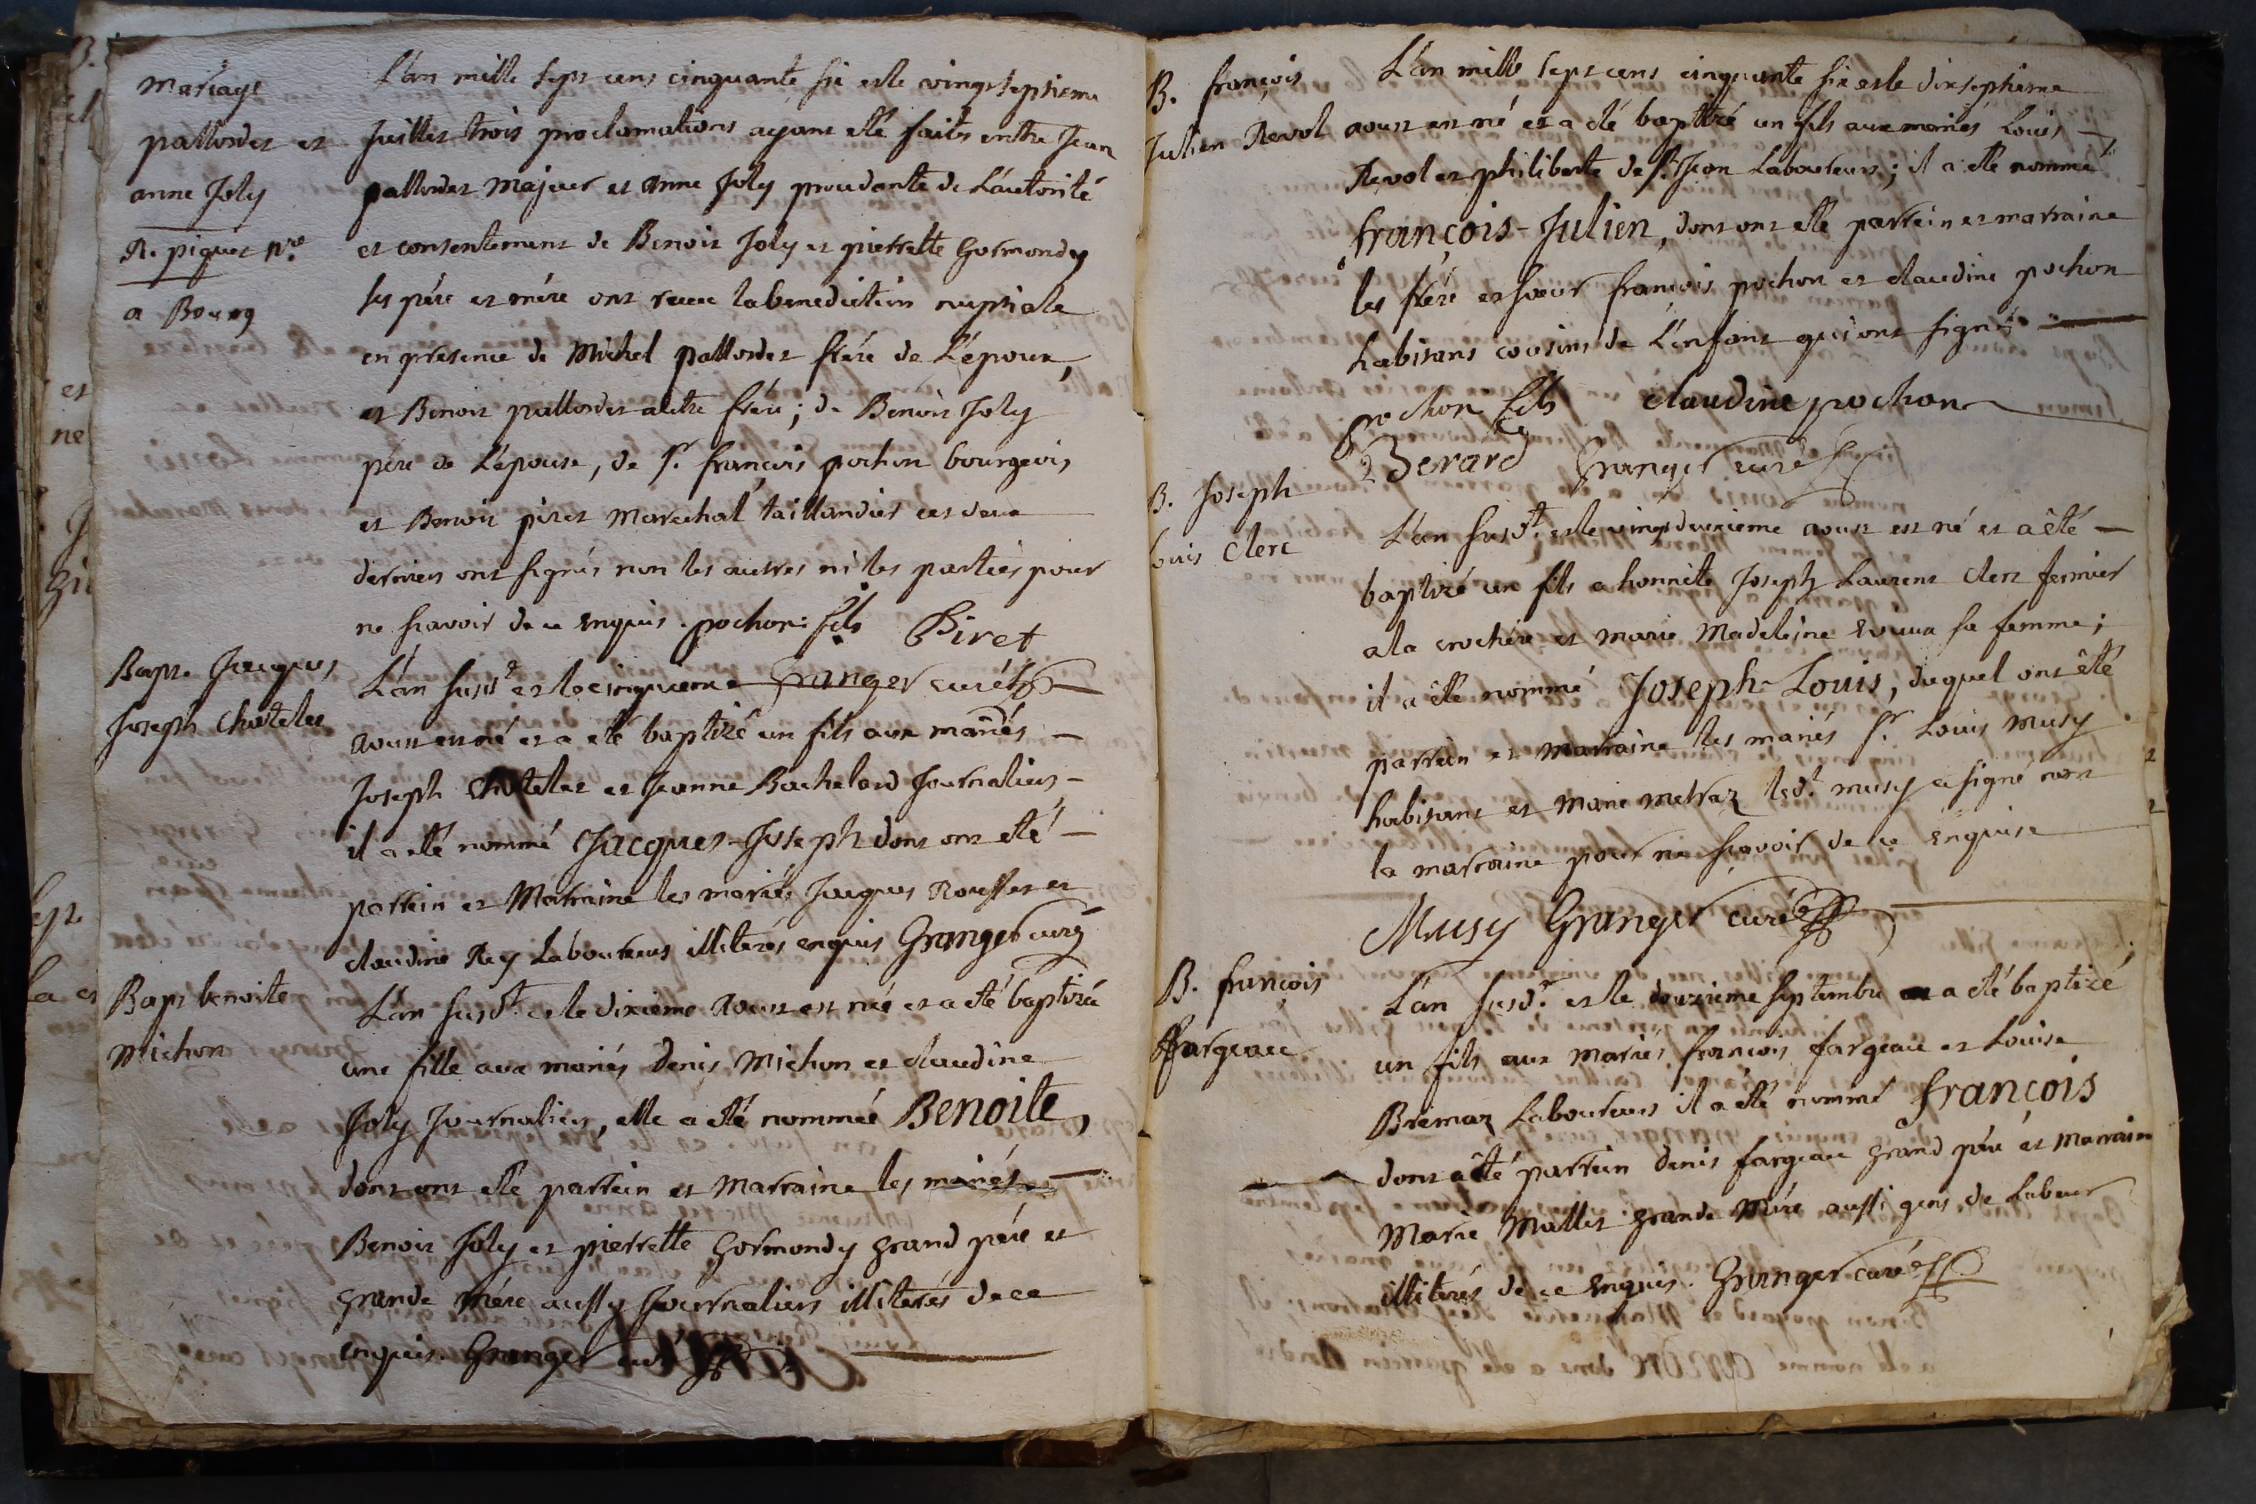 mariage
pattordet et
anne Joly
R. piquet nre
a Bourg
L'an mille sept cens cinquante six et le vingtseptieme
Juillet trois proclamations ayant été faites entre Jean
pallordet majeur et anne Joly procedante de L'autorité
et consentement de Benoit Joly et pierrette Gormondy
ses pére et mére ont receu la benediction nuptiale
en presence de Michel pallordet frére de L'époux,
et Benoit pallordet autre frére; de Benoit Joly
pére de L'épouse, de Sr. françois pochon bourgeois,
et Benoit piret marechal taillandier ces deux
derniers ont signés non les autres ni les parties pour
ne sçavoir de ce enquis. pochon fils Piret
Granger curé
Bapt. Jacques
Joseph Chatelet
L'an susd. et le cinquieme
aoust est né et a été baptizé un fils aux mariés
Joseph Chatelet et Jeanne Bachelard Journaliers
il a été nommé Jacques-Joseph dont ont été
parrein et Marraine les mariés Jacques Rousset et
claudine Rey Laboureurs illiterés enquis Granger curé
Bapt benoite
Michon
L'an susdt. et le dixieme aoust est née et a été baptizée
une fille aux mariés Denis Michon et claudine
Joly Journaliers, elle a été nommée BENOITE,
dont ont été parrein et marraine les mariés
Benoit Joly et pierrette Gormondy grand pére et
grande mére aussy Journaliers illiterés de ce
enquis. Granger curé
B. françois
Julien Revol
L'an mille sept cens cinquante six et le dixseptieme
aoust est né et a été baptizé un fils aux mariés Louis
Revol et philiberte de St. Jean Laboureurs; il a été nommé
françois-Julien, dont ont été parrein et marraine
les frére et soeur françois pochon et claudine pochon
habitans cousins de L'enfant qui ont signés
pochon fils claudine pochon
Berard Granger curé
B. Joseph
Louis Clerc
L'an susdt. et le vingtdeuxieme aoust est né et a été
baptizé un fils a honnête Joseph Laurent Clerc fermier
a la crochére et marie Madeleine sa femme;
il a été nommé Joseph-Louis, duquel ont été
parrein et marraine les mariés Sr. Louis musy
habitant et marie metraz led. musy a signé non
la marraine pour ne sçavoir de ce enquise
Musy Granger curé
B. françois
fargeau
L'an susdt. et le douzieme septembre a été baptizé
un fils aux mariés françois fargeau et Louise
Bremaz Laboureurs il a été nommé françois
dont a été parrein denis fargeau grand pére et marraine
Marie Mallet grande mére aussi gens de Labeur
illiterés de ce enquis. Granger curé